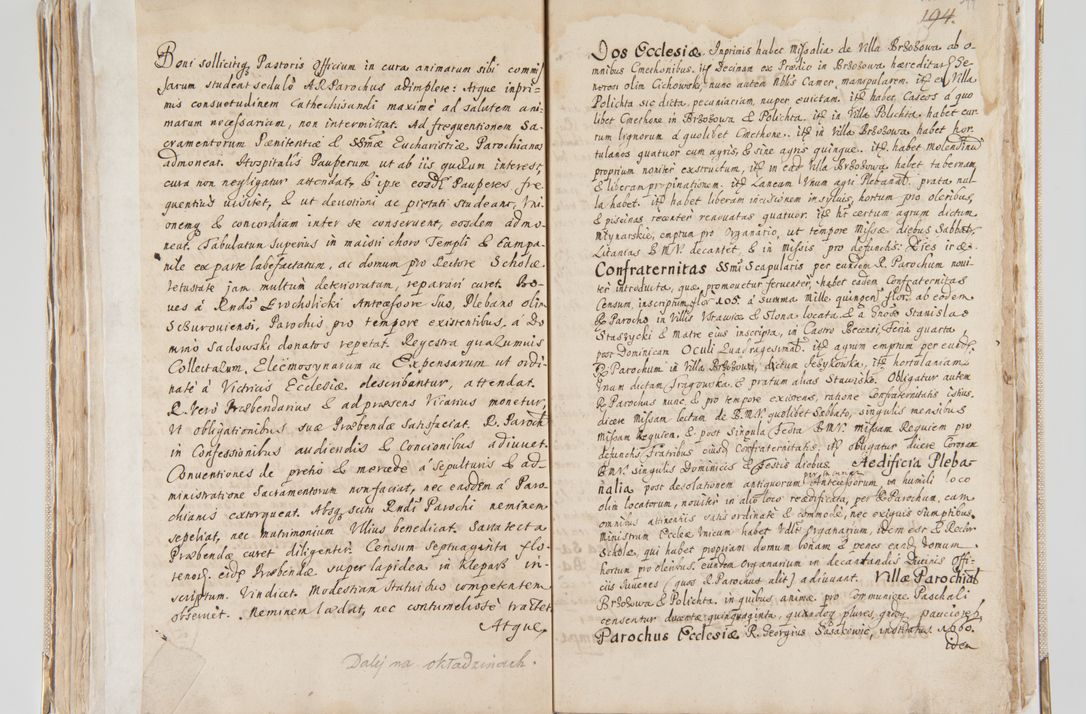 Boni sollicitq Pastoris Officium in cura animarum sibi commis
sarum student sedulò A.R. Parochus adimplere: Atque inpri-
mis consuetudinem Cathechisandi maximè ad salutem ani-
marum necessarium, non intermittat. Ad frequentionem Sa-
cramentorum Pænitentiæ & SSmæ Eucharistiæ Parochianos
admoneat. Hospitalis Pauperum ut ab iis quorum interest,
cura non negligatur attendat, & ipse eosdem Pauperes fre
quentius visitet, & ut devotioni ac pietati studeant, Vni-
onemq & concordiam inter se conservent, eosdem admo-
neat. Tabulatum superius in maiori choro Templi & Campa-
nile ex parte labefactatum, ac domum pro Rectore Scholæ
vetustate jam multum deterioratum, reparari curet. Bo-
ves á Rndo Grocholicki Antecessore suo, Plebano olim
Scżurowiensi, Parochis pro tempore existentibus, á Do
mino Sadowski donatos repetat. Regestra qualiumvis
Collectarum. Eleemosynarum ac Expensarum ut ordi-
natè á Victricis Ecclesiæ describantur, attendat.
R. Verò Præbendarius & ad præsens Vicarius monetur,
Vt obligationibus suæ Præbendæ satisfaciat. R. Paroch
in Confessionibus audiendis & Concionibus adiuvet.
Conventiones de pretio & mercede á sepulturis & ad-
ministratione Sacramentorum non faciat, nec easdem á Paro-
chianis extorqueat. Absq scitu Rndi Parochi neminem
sepeliat, nec matrimonium Vllius benedicat. Sarta tecta
Præbendæ curet diligenter. Censum septuaginta flo-
renorum eidem Præbendæ super lapidea in Kleparż in-
scriptum. Vindicet. Modestiam statui suo competentem
observet. Neminem lædat, nec contumeliosè tractet
Atque,
Dalej na okładzinach.
194.
Dos Ecclesiæ. Inprimis habet Missalia de Villa Brżożowa ab o-
mnibus Cmethonibus. itē Decimam ex Prædio in Brżożowa hæreditar Ge-
nerosi olim Cichowski, nunc autem Nblis Camer, manipularem. itē ex Villa
Polichta sic dicta, pecuniariam, nuper evictam. itē habet Caseos á quo
libet Cmethone in Brżożowa & Polichta. itē in Villa Polichta habet cur
rum lignorum á quolibet Cmethone. itē in Villa Brżożowa habet hor
tulanos quatuor cum agris, & sine agris quinque. itē habet Molendinū
proprium noviter exstructum, itē in ead Villa Brżożowa habet tabernam
& liberam propinationem. itē Laneum Vnum agri Plebanat. prata nul
la habet. itē habet liberam incisionem in sylvis, hortum pro oleribus,
& piscinas recenter renovatas quatuor. itē ht certum agrum dictum
Młynarskie, emptum pro Organario, ut tempore Missæ diebus Sabbato,
Litanias B.M.V. decantet, & in Missis pro defunctis: Dies iræ.
Confraternitas SSmi Scapularis per eundem R. Parochum novi-
ter introducta, quæ promovetur ferventer, habet eadem Confraternitas
Censum, inscriptum flor 105. á summa Mille quingen flor. ab eodem
R Parocho in Villis Vstawiæ & Słona locata, & á Gnoso Stanislao
Staszycki & Matre eius inscripta, in Castro Becensi, Feria quarta
post Dominicam Oculi Quadragesimal. itē agrum emptum per eund.
R Parochum in Villa Brżożowa, dictum Jeżykowska, itē hortulaniam
Vnam dictam, Fragowska, & pratum alias Stawisko. Obligatur autem
R Parochus nunc & pro tempore existens, ratione Confraternitatis istius,
dicere Missam lectam de B.M.V. quolibet Sabbato, singulis mensibus
Missam Requiem, & post singula Festa B.M.V. missam Requiem pro
defunctis Fratribus eiusd Confraternitatis. itē obligatur dicere Coronam
B.M.V. singulis Dominicis & Festis diebus. Aedificia Pleba-
nalia post desolationem antiquorum per incuriam Antecessorum, in humili loco
olim locatorum, noviter in alio loco reædificata, per R Parochum, cum
omnibus attinentiis satis ordinatè & commodè, nec exiguis sumptibus.
Ministrum Ecclæ Vnicum habet Vdlt Organarium, idem est & Rector
Scholæ, qui habet propriam domum bonam & penes eand. domum
hortum pro oleribus. eundem Organarium in decantandis Divinis Offi-
ciis Juvenes (quos R Parochus alit) adiuvant. Villæ Parochial
Brżożowa & Polichta. in quibus animæ pro Communione Paschali
censentur ducentæ quinquaginta, quandoq plures, qndoq pauciores.
Parochus Ecclesiæ R. Georgius Sasakowic, institutus 1680.
idem